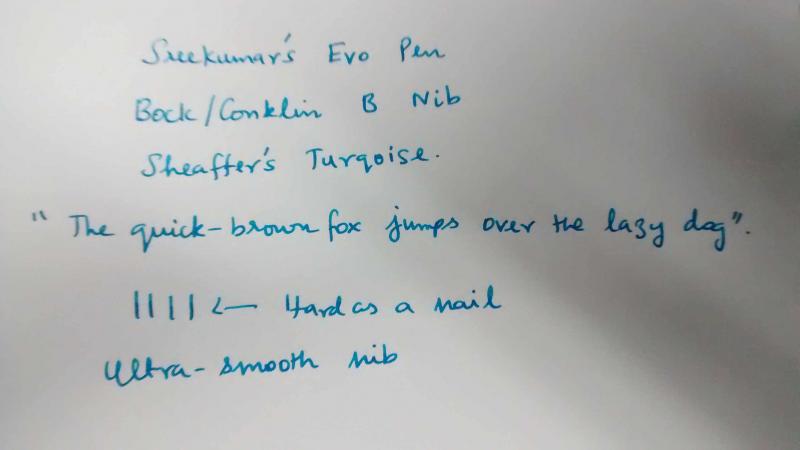 Sreekumar's Evo Pen
Bock/Conklin B Nib
Sheaffer's Turqoise.
"The quick-brown fox jumps over the lazy dog".
|||| <— Hard as a nail
Ultra-smooth nib